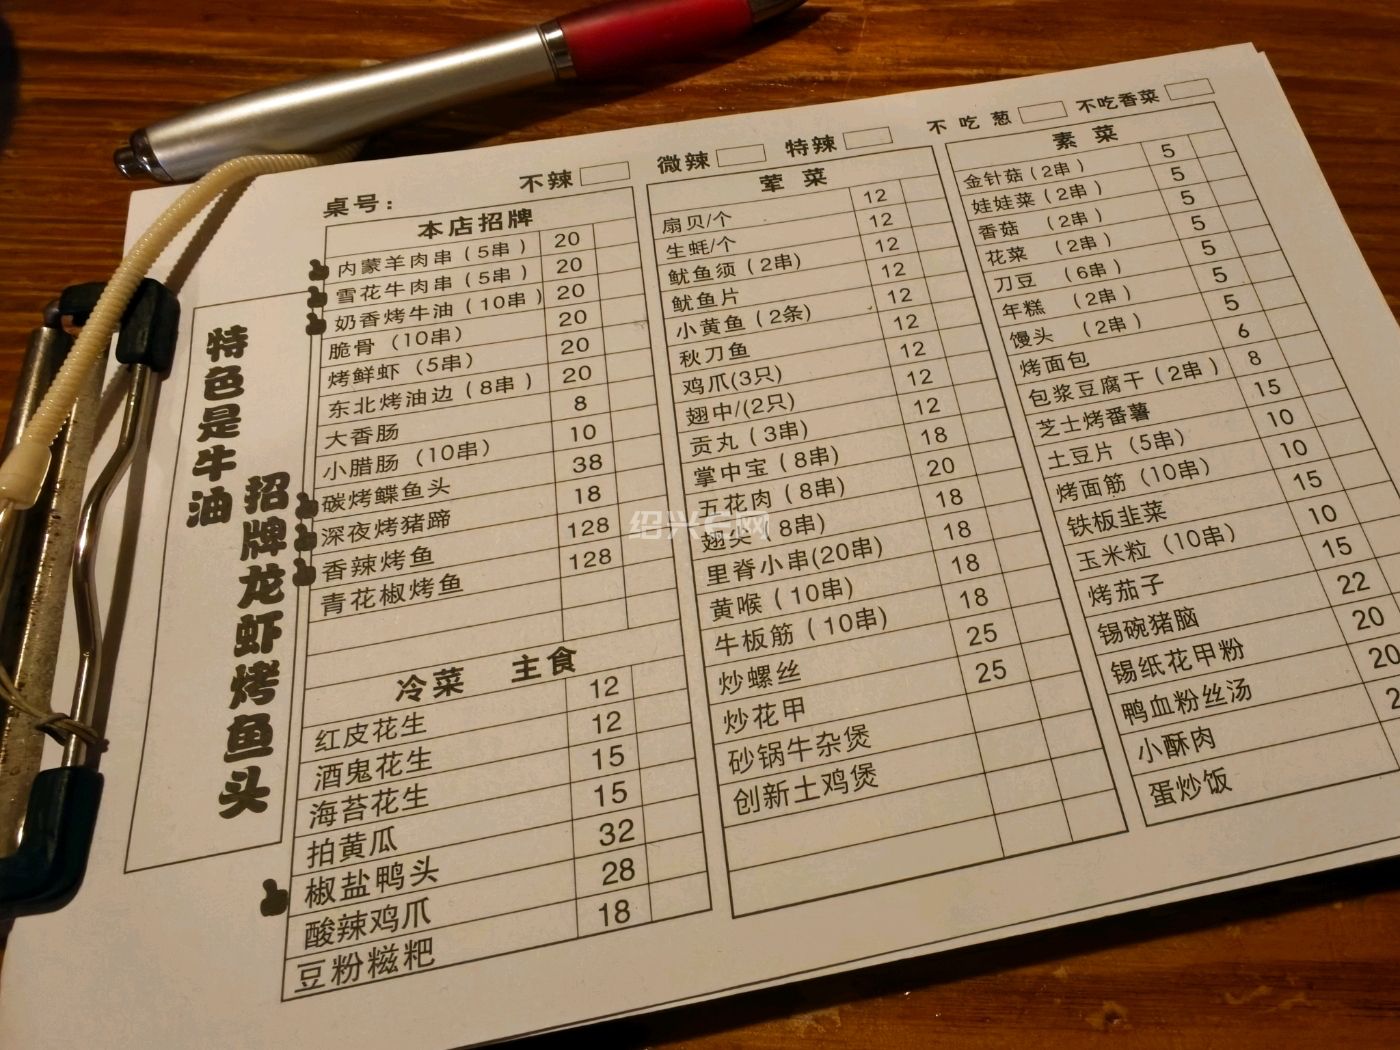 不辣 微辣 特辣 不吃葱 不吃香菜
桌号：
特色是牛油
招牌龙虾烤鱼头
本店招牌
内蒙羊肉串（5串） 20
雪花牛肉串（5串） 20
奶香烤牛油（10串） 20
脆骨（10串） 20
烤鲜虾（5串） 20
东北烤油边（8串） 20
大香肠 8
小腊肠（10串） 10
碳烤鲽鱼头 38
深夜烤猪蹄 18
香辣烤鱼 128
青花椒烤鱼 128
冷菜 主食
红皮花生 12
酒鬼花生 12
海苔花生 15
拍黄瓜 15
椒盐鸭头 32
酸辣鸡爪 28
豆粉糍粑 18
荤菜
扇贝/个 12
生蚝/个 12
鱿鱼须（2串） 12
鱿鱼片 12
小黄鱼（2条） 12
秋刀鱼 12
鸡爪(3只) 12
翅中/(2只) 12
贡丸（3串） 12
掌中宝（8串） 18
五花肉（8串） 20
翅尖（8串） 18
里脊小串(20串) 18
黄喉（10串） 18
牛板筋（10串） 18
炒螺丝 25
炒花甲 25
砂锅牛杂煲
创新土鸡煲
素菜
金针菇（2串） 5
娃娃菜（2串） 5
香菇（2串） 5
花菜（2串） 5
刀豆（6串） 5
年糕（2串） 5
馒头（2串） 5
烤面包 6
包浆豆腐干（2串） 8
芝士烤番薯 15
土豆片（5串） 10
烤面筋（10串） 10
铁板韭菜 15
玉米粒（10串） 10
烤茄子 15
锡碗猪脑 22
锡纸花甲粉 20
鸭血粉丝汤 20
小酥肉
蛋炒饭
绍兴E网